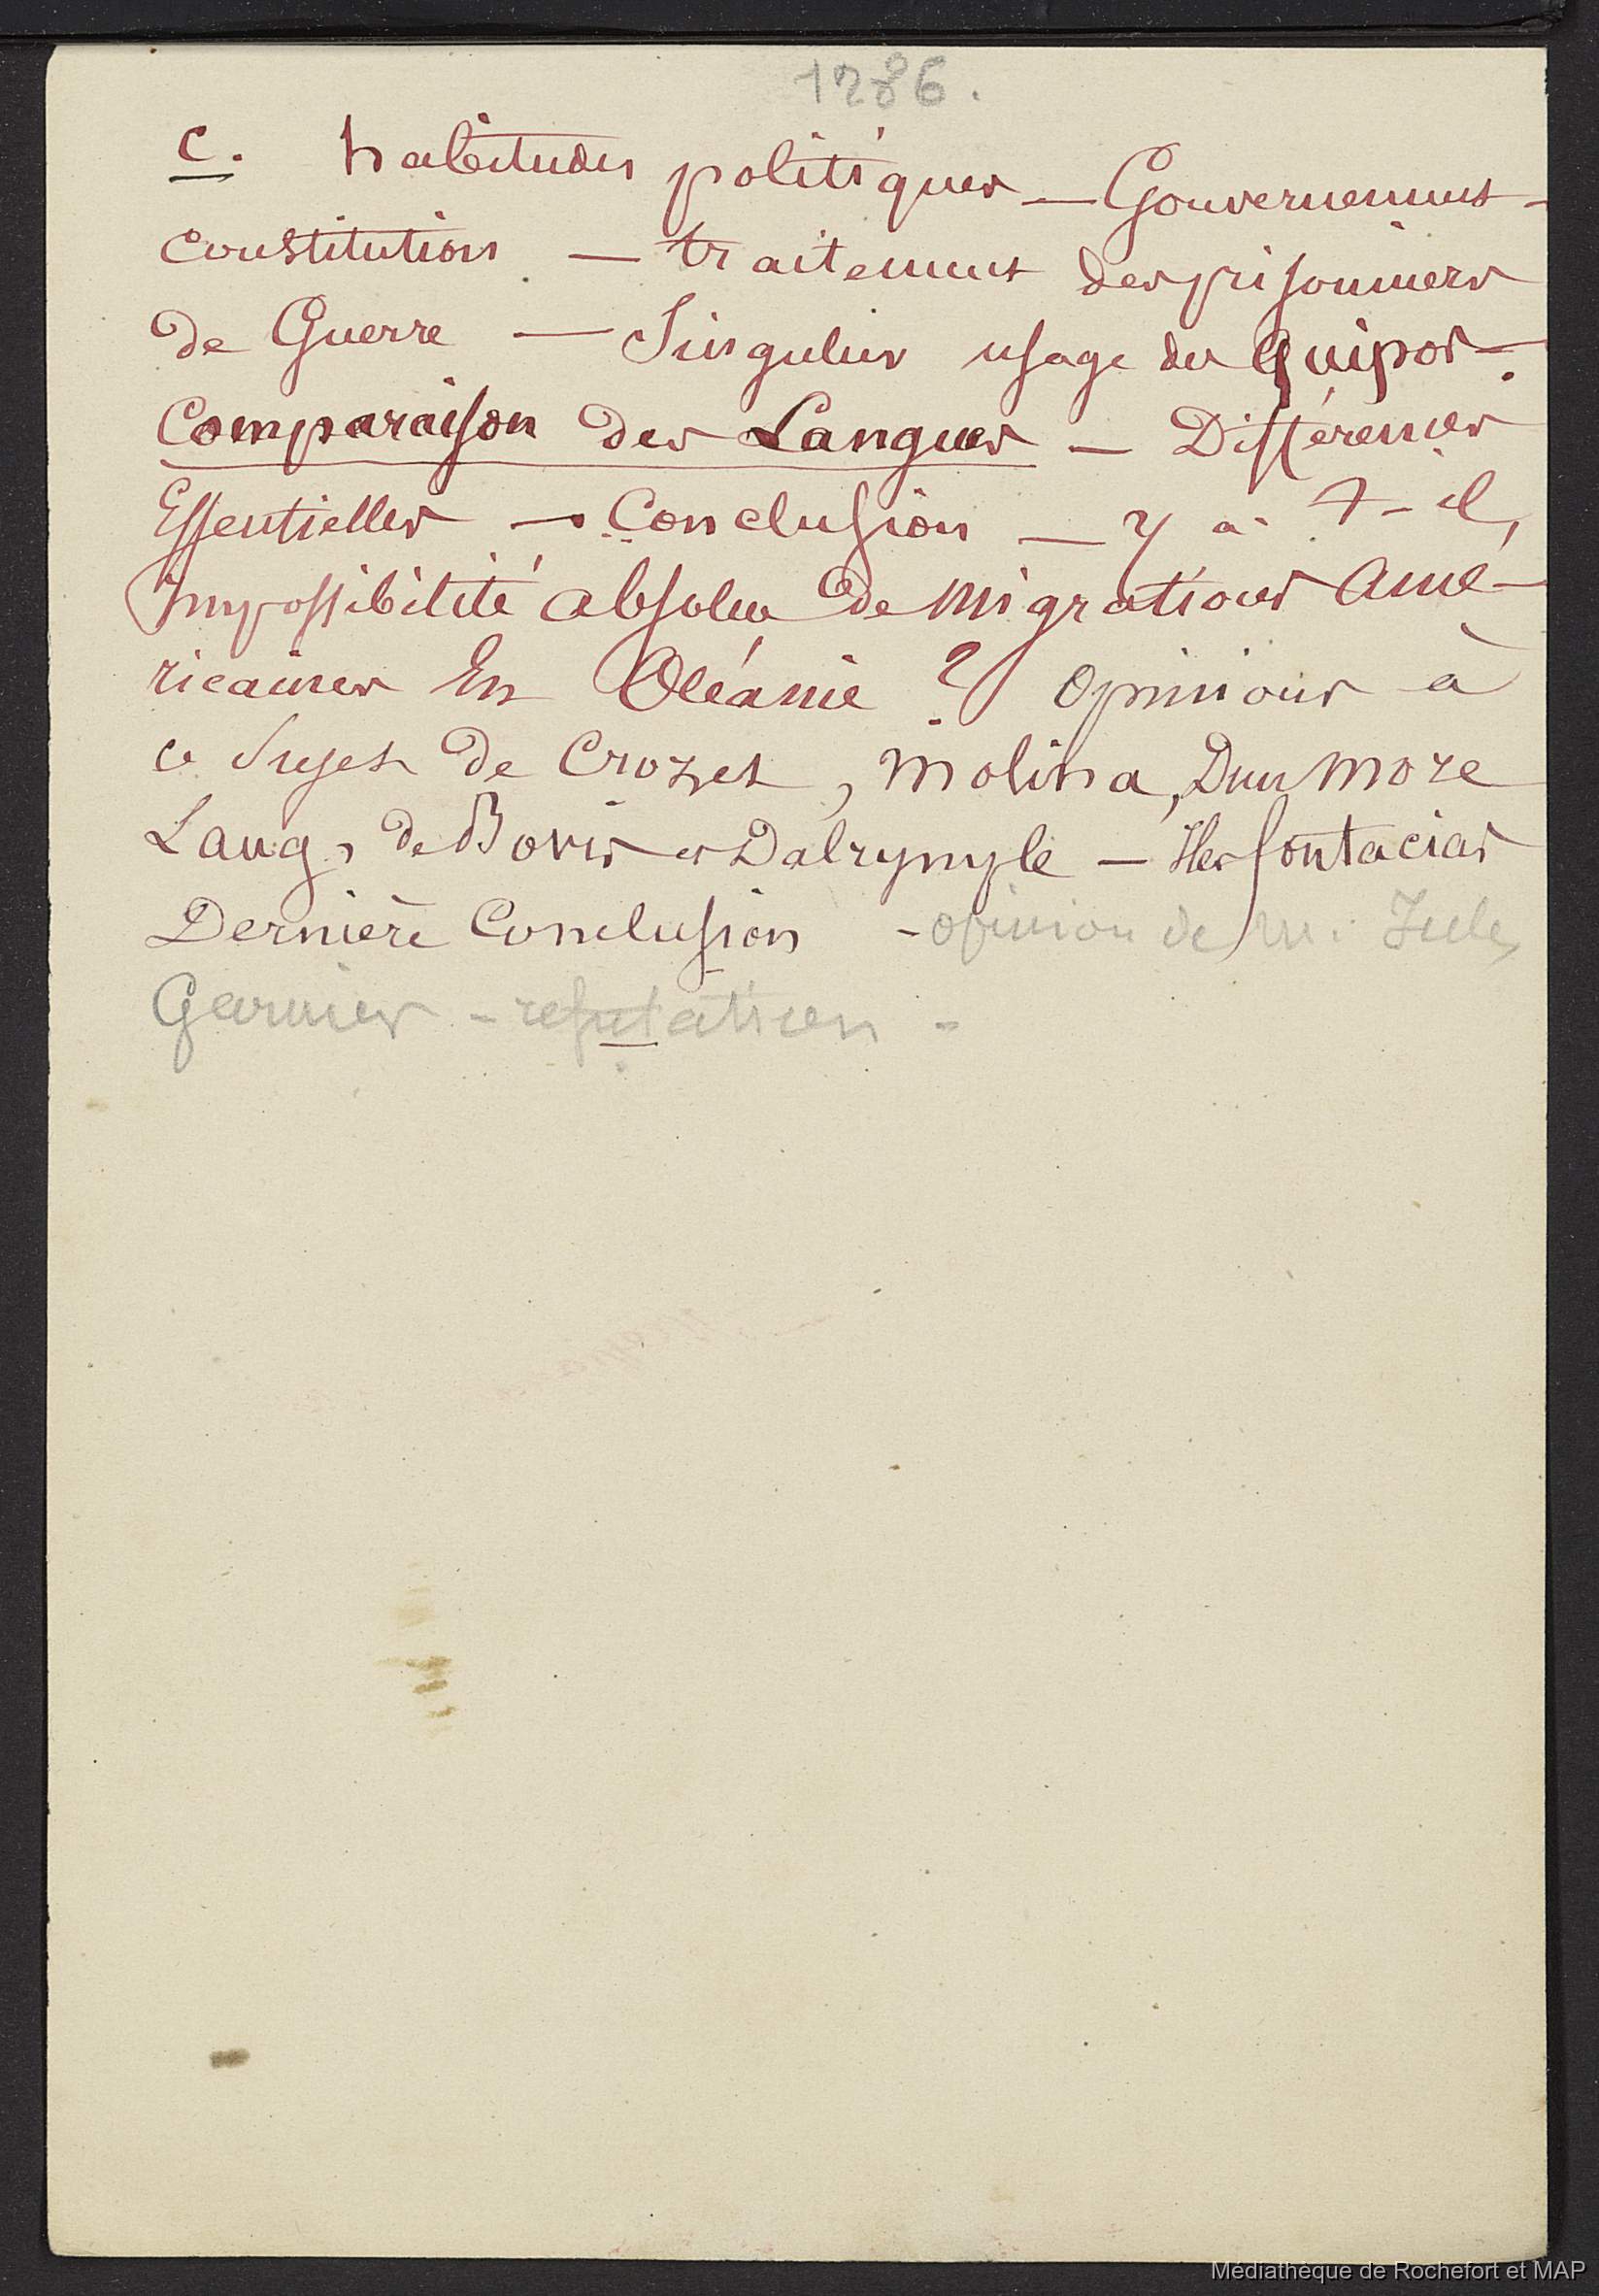 1286.
c. habitudes politiques — Gouvernement -
constitution — traitement des prisonniers
de Guerre — Singulier usage des Quipos -.
Comparaison des Langues — Différences
Essentielles — Conclusion — y a - t - il,
impossibilité absolue de migrations Amé-
ricaines En Océanie ? Opinions à
ce sujet de Crozet, Molina, Dunmore
Lang, de Bovis et Dalrymple — Iles fontacias
Dernière Conclusion - opinion de M. Jules
Garnier - refutation -
Médiathèque de Rochefort et MAP